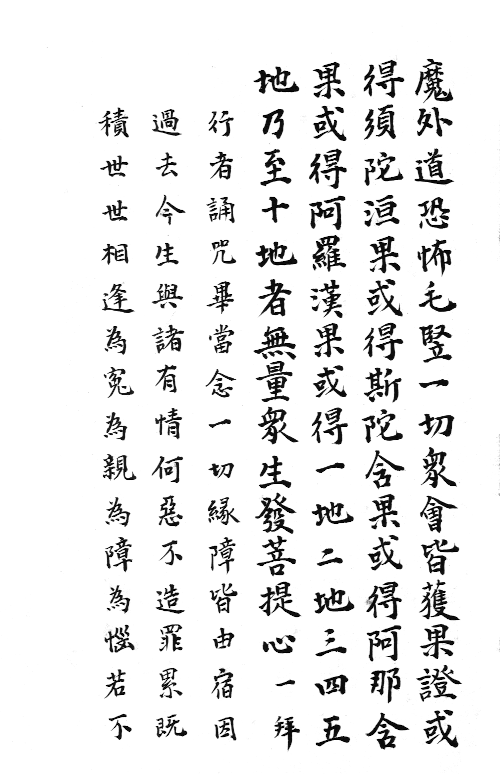 魔外道恐怖毛豎一切眾會皆獲果證或
得須陀洹果或得斯陀含果或得阿那含
果或得阿羅漢果或得一地二地三四五
地乃至十地者無量眾生發菩提心一拜
行者誦咒畢當念一切緣障皆由宿因
過去今生與諸有情何惡不造罪累既
積世世相逢為冤為親為障為惱若不